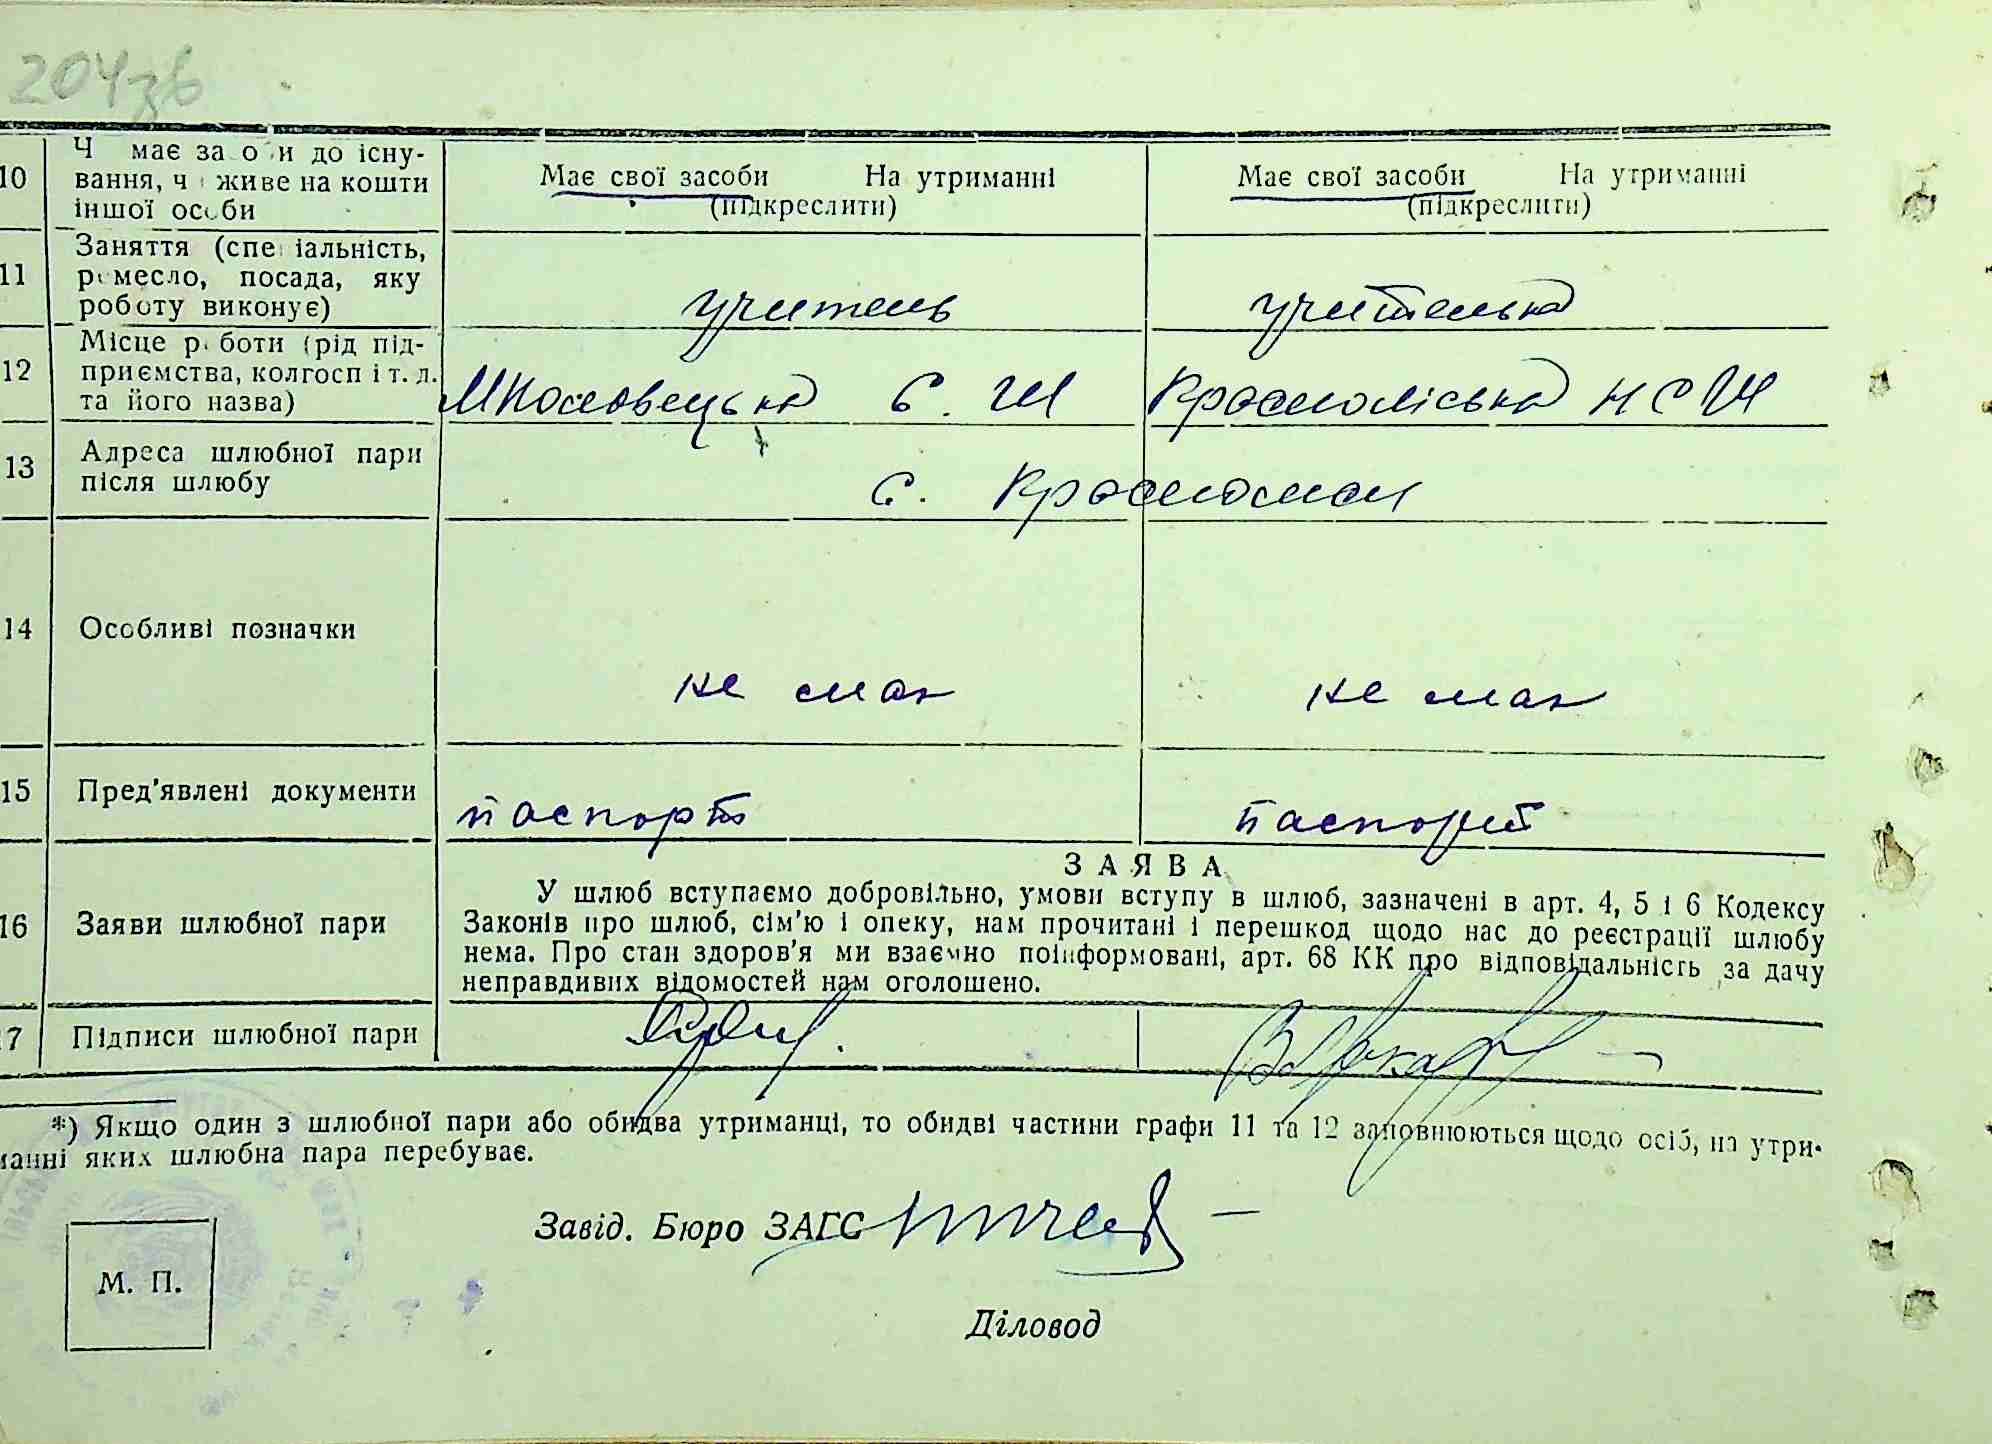 204зв
10 Ч має за о и до існу-
вання, ч живе на кошти
іншої особи
Має свої засоби На утриманні
(підкреслити)
Має свої засоби На утриманні
(підкреслити)
11 Заняття (спе іальність,
ремесло, посада, яку
роботу виконує)
учитель
учителька
12 Місце роботи (рід під-
приємства, колгосп і т. д.
та його назва)
С. Ш
Краснопільська НСШ
13 Адреса шлюбної пари
після шлюбу
с. Краснопіль
14 Особливі позначки
не має
не має
15 Пред'явлені документи
паспорт
паспорт
16 Заяви шлюбної пари
ЗАЯВА
У шлюб вступаємо добровільно, умови вступу в шлюб, зазначені в арт. 4, 5 і 6 Кодексу
Законів про шлюб, сім'ю і опеку, нам прочитані і перешкод щодо нас до реєстрації шлюбу
нема. Про стан здоров'я ми взаємно поінформовані, арт. 68 КК про відповідальність за дачу
неправдивих відомостей нам оголошено.
7 Підписи шлюбної пари
*) Якщо один з шлюбної пари або обидва утриманці, то обидві частини графи 11 та 12 заповнюються щодо осіб, на утри-
манні яких шлюбна пара перебуває.
Завід. Бюро ЗАГС
М. П.
Діловод